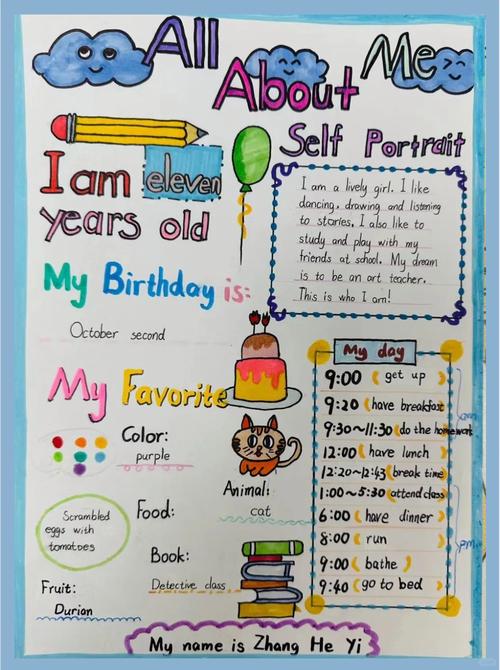 All About Me
I am eleven
years old
Self Portrait
I am a lively girl. I like
dancing, drawing and listening
to stories. I also like to
study and play with my
friends at school. My dream
is to be an art teacher.
This is who I am!
My Birthday is:
October second
My Favorite
Color:
purple
Animal:
cat
Food:
Scrambled
eggs with
tomatoes
Book:
Detective class
Fruit:
Durian
My day
9:00 ( get up )
9:20 (have breakfast)
9:30~11:30 (do the homework
12:00 ( have lunch )
12:20~12:43 (break time)
1:00~5:30 (attend class)
6:00 ( have dinner )
8:00 ( run )
9:00 ( bathe )
9:40 ( go to bed )
am
pm
My name is Zhang He Yi